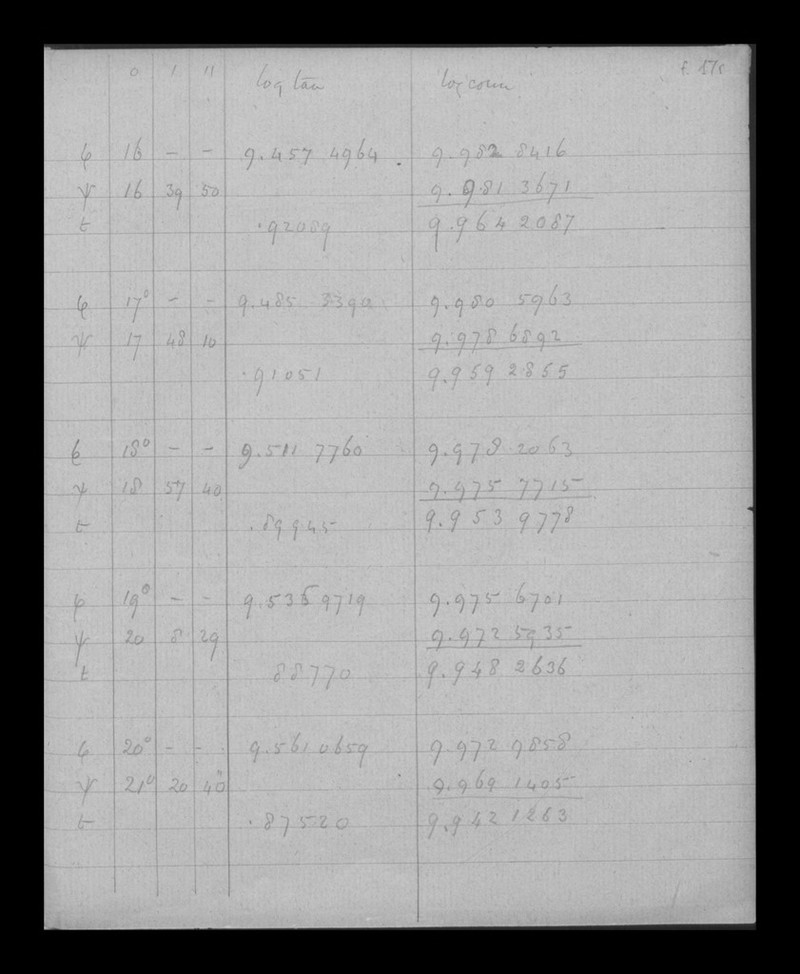 0 ' '' log tan log cosin
φ 16 - - 9.457 4964 . 9.982 8416
ψ 16 39 50 9.981 3671
t .92089 9.964 2087
φ 17° - - 9.485 3390 9.980 5963
ψ 17 48 10 9.978 6892
.91051 9.959 2855
φ 18° - - 9.511 7760 9.978 2063
ψ 18 57 40 9.975 7715
t .89945 9.953 9778
φ 19° - - 9.536 9719 9.975 6701
ψ 20 8 29 9.972 5935
t 88770 9.948 2636
φ 20° - - 9.561 0659 9.972 9858
ψ 21° 20 40" 9.969 1405
t .87520 9.942 1263